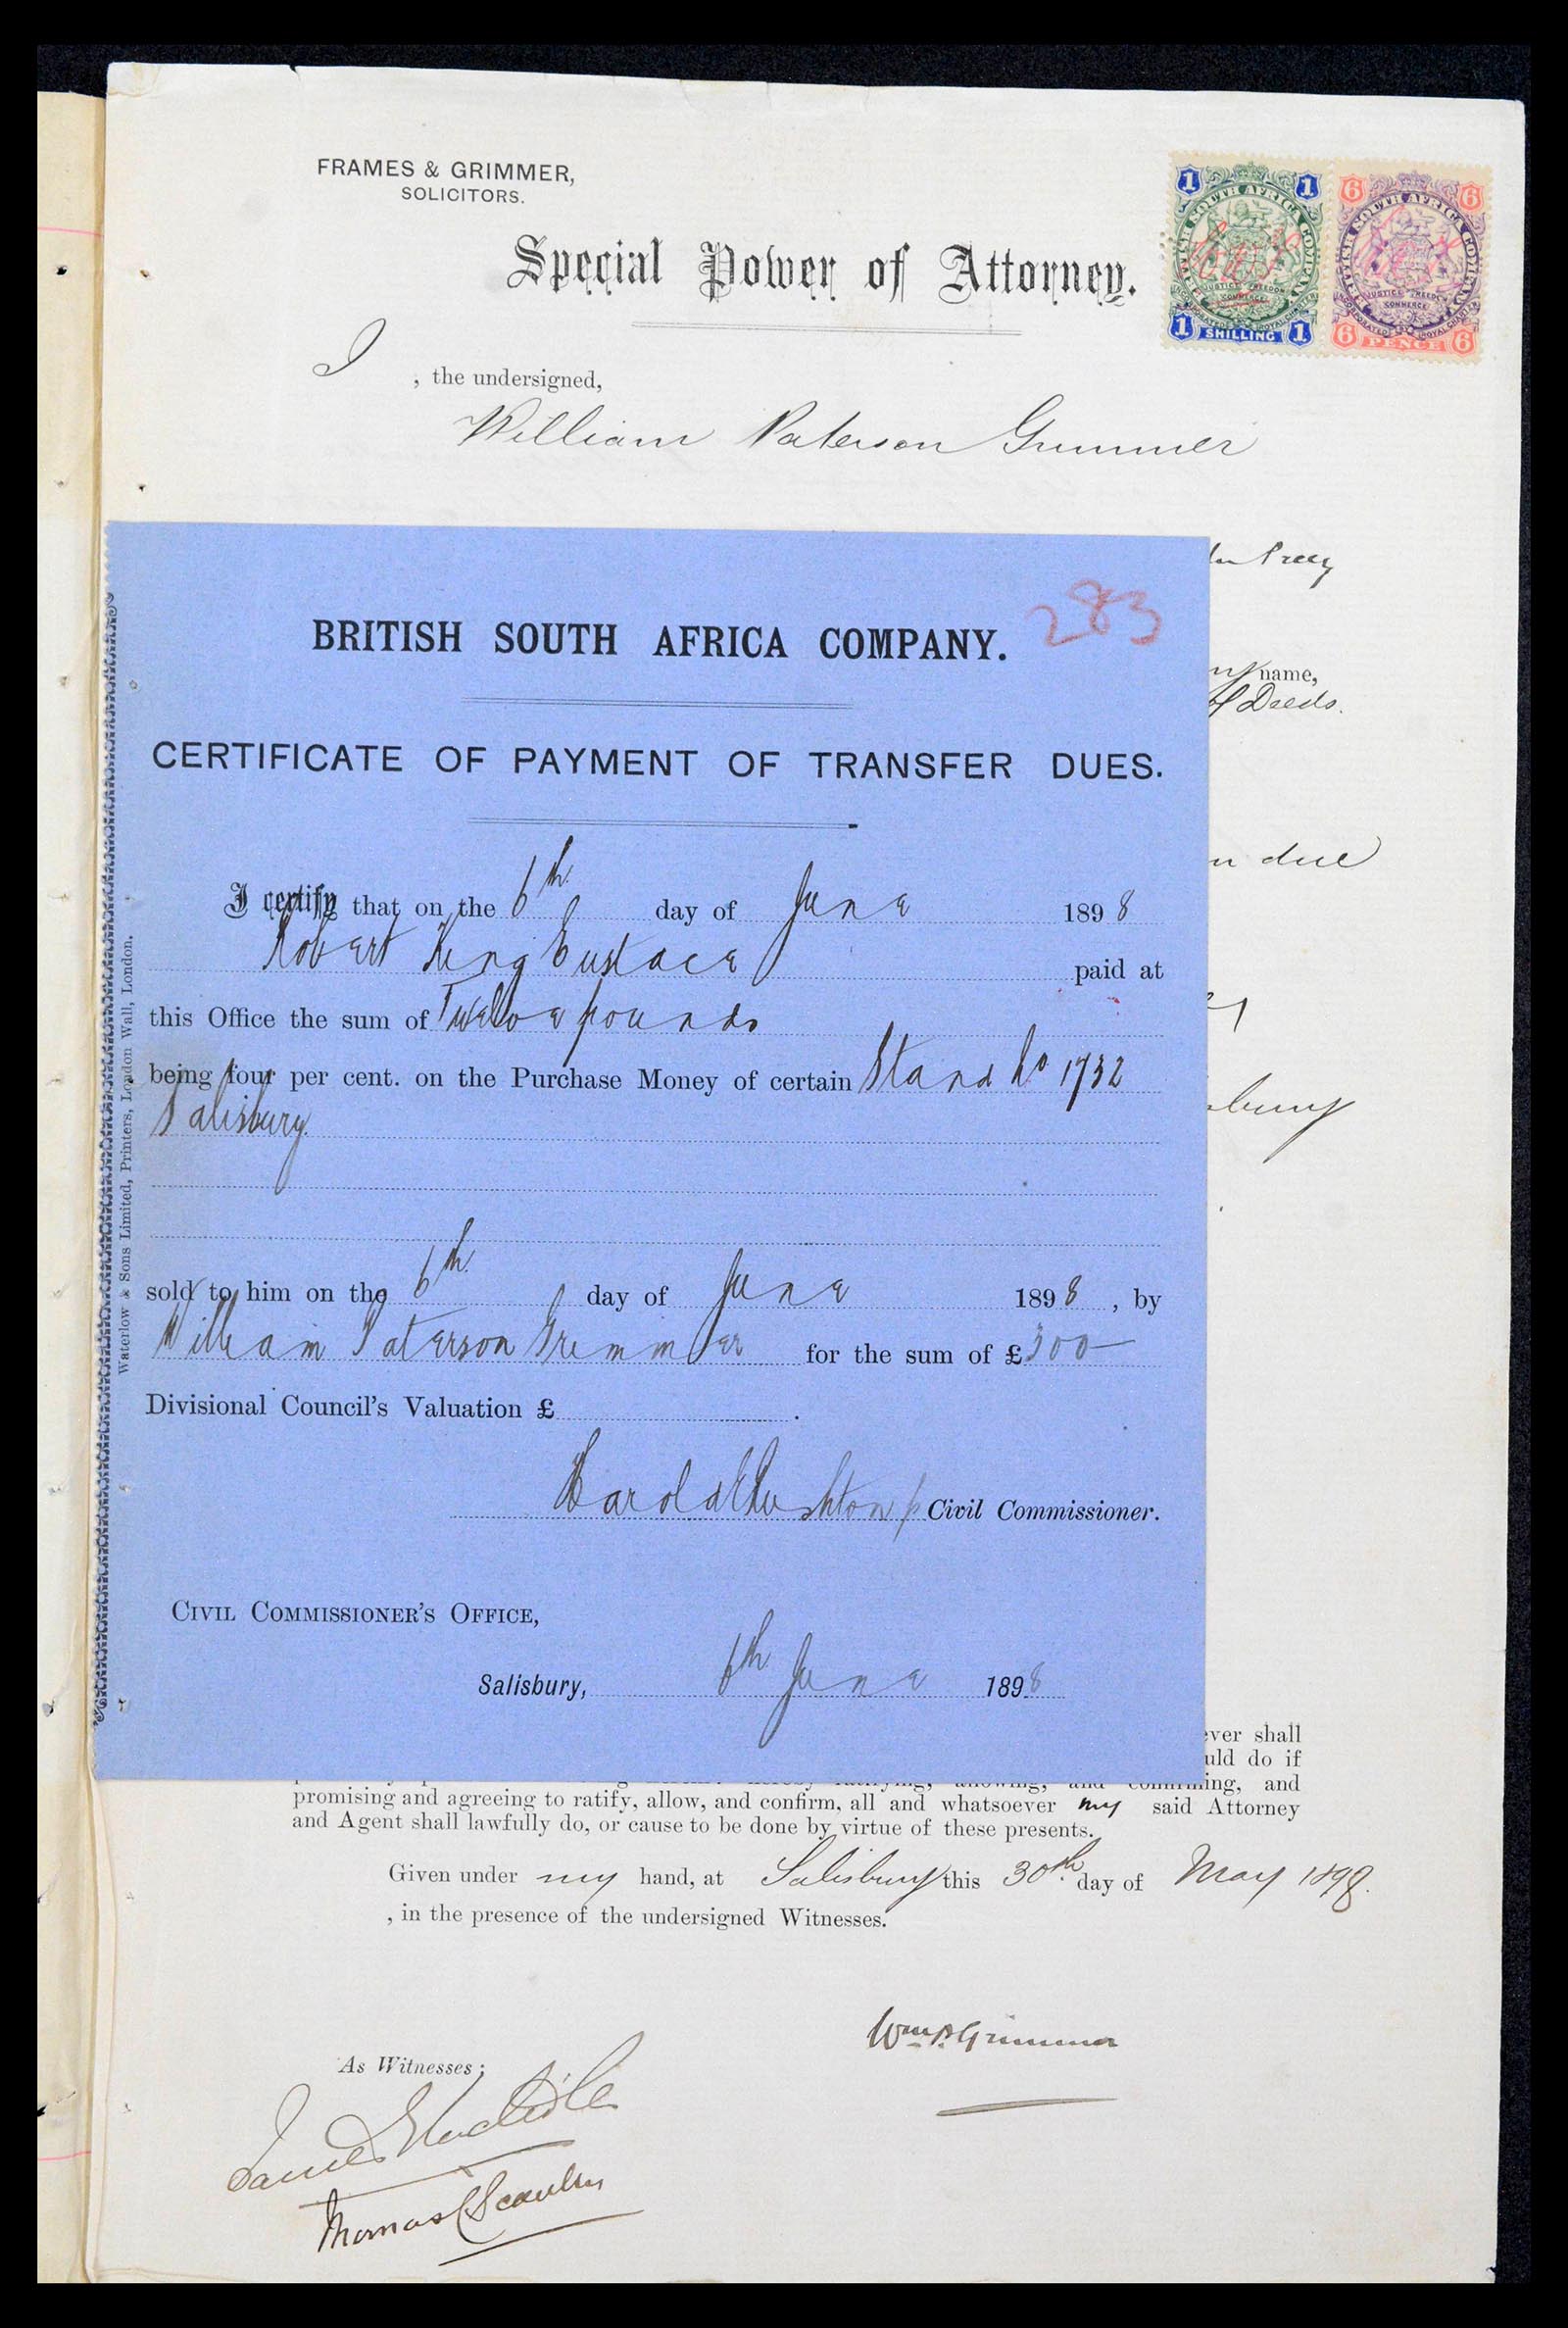 FRAMES & GRIMMER,
SOLICITORS.
Special Power of Attorney.
1 1
BRITISH SOUTH AFRICA COMPANY
JUSTICE FREEDOM
COMMERCE
1 SHILLING 1
6 6
BRITISH SOUTH AFRICA COMPANY
JUSTICE FREEDOM
COMMERCE
6 PENCE 6
I , the undersigned,
William Paterson Grimmer
name,
of Deeds.
due
BRITISH SOUTH AFRICA COMPANY.
283
CERTIFICATE OF PAYMENT OF TRANSFER DUES.
I certify that on the 6th day of June 1898
Robert King Eustace paid at
this Office the sum of Twelve pounds
being four per cent. on the Purchase Money of certain Stand No 1732
Salisbury.
sold to him on the 6th day of June 1898 , by
William Paterson Grimmer for the sum of £300
Divisional Council's Valuation £ .
Harold Civil Commissioner.
CIVIL COMMISSIONER'S OFFICE,
Salisbury, 6th June 1898
Waterlow & Sons Limited, Printers, London Wall, London.
ever shall
uld do if
ing, and
promising and agreeing to ratify, allow, and confirm, all and whatsoever my said Attorney
and Agent shall lawfully do, or cause to be done by virtue of these presents.
Given under my hand, at Salisbury this 30th day of May 1898.
, in the presence of the undersigned Witnesses.
Wm P. Grimmer
As Witnesses:
James
Thomas